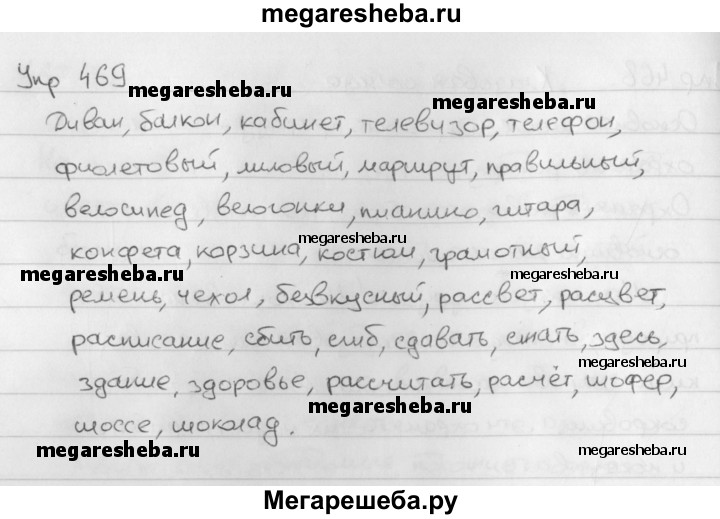 megaresheba.ru
Упр 469
megaresheba.ru
megaresheba.ru
Диван, балкон, кабинет, телевизор, телефон,
фиолетовый, лиловый, маршрут, правильный,
велосипед, велогонки, пианино, гитара,
megaresheba.ru
конфета, корзина, костюм, грамотный,
megaresheba.ru
megaresheba.ru
ремень, чехол, безвкусный, рассвет, расцвет,
расписание, сбить, сшиб, сдавать, стать, здесь,
megaresheba.ru
здание, здоровье, рассчитать, расчёт, шофер,
megaresheba.ru
шоссе, шоколад.
megaresheba.ru
megaresheba.ru
Мегарешеба.ру